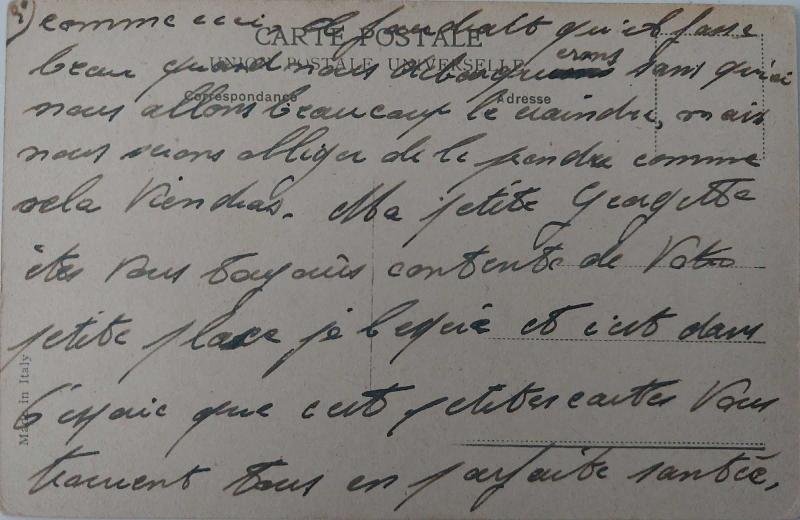 2)
comme ceci, il faudrait qu'il fasse
CARTE POSTALE
beau quand nous debarquerons sans quoi
UNION POSTALE UNIVERSELLE
Correspondance
Adresse
nous allons beaucoup le craindre, mais
nous serons obliger de le prendre comme
cela Viendras. Ma petite Georgette
êtes Vous toujours contente de Votre
petite place je l'espère et c'est dans
l'espoir que cest petites cartes Vous
trouvent tous en parfaite santée,
Made in Italy